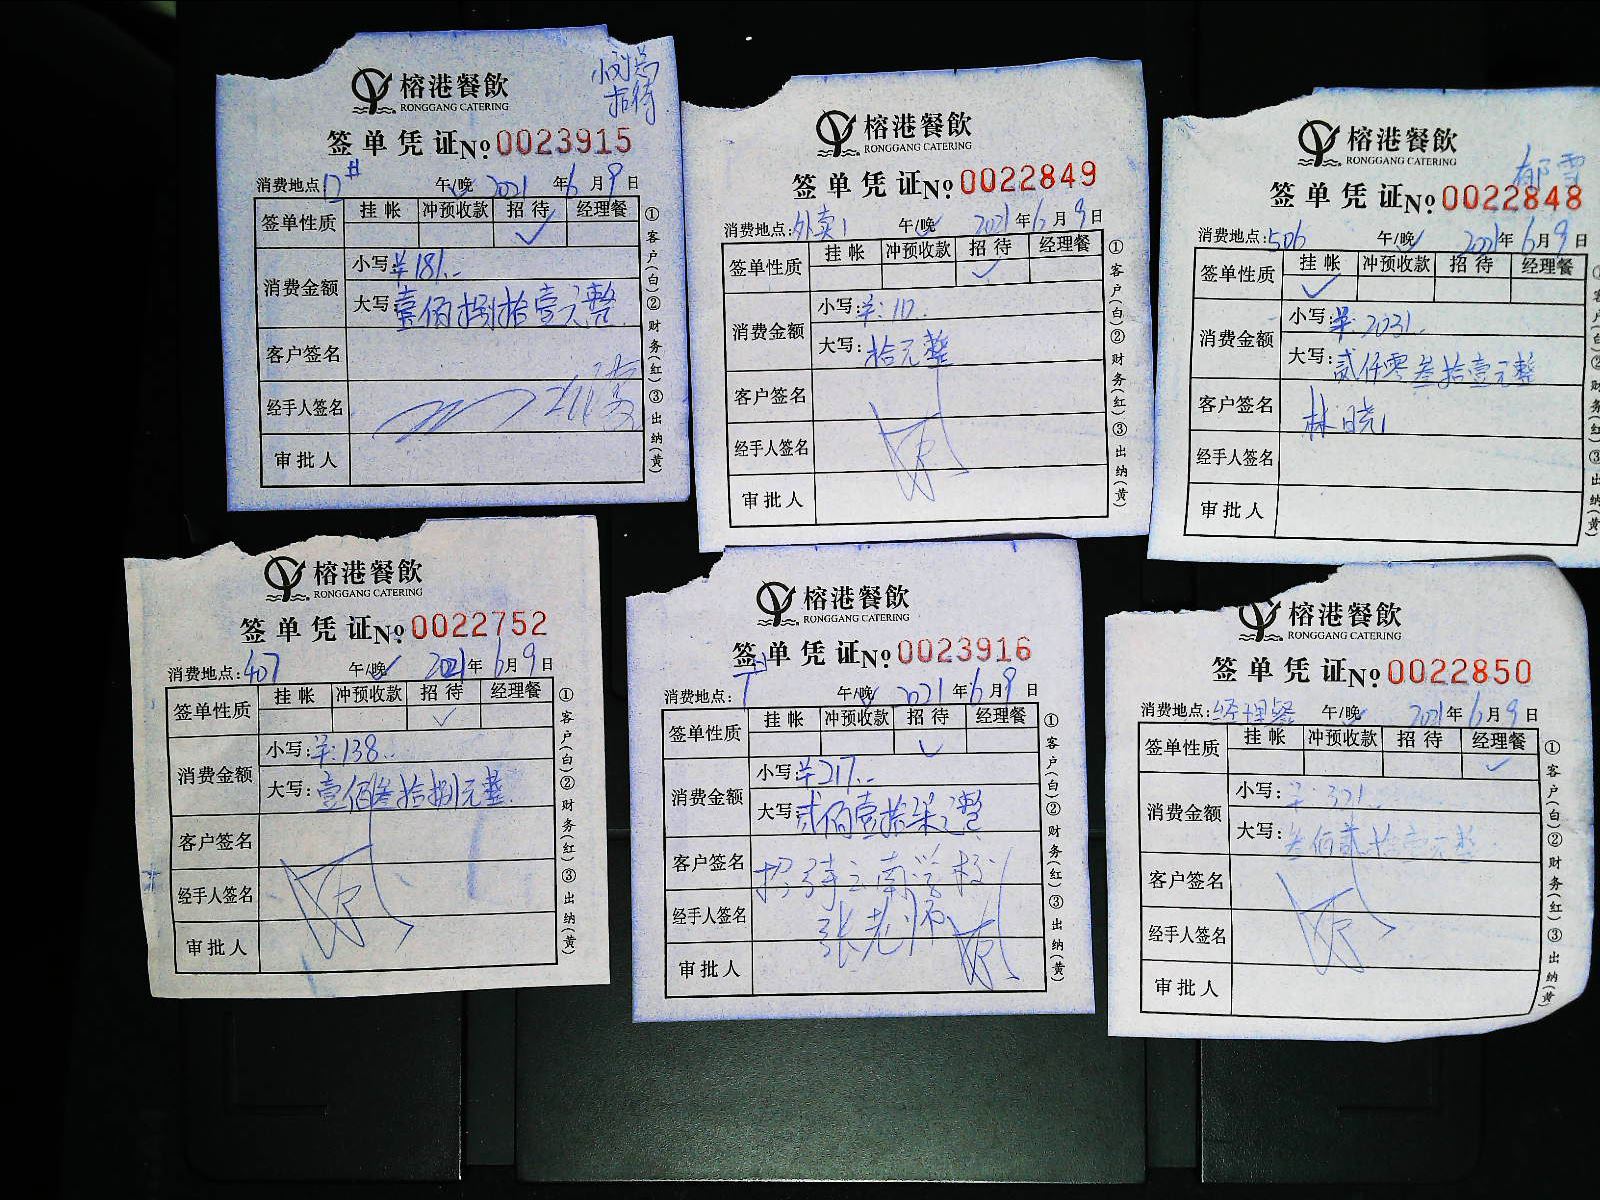 榕港餐飲
RONGGANG CATERING
招待
签单凭证No.0023915
消费地点:12# 午/晚 2021年6月9日
签单性质 挂帐 冲预收款 招待 经理餐
✓
消费金额 小写:¥181.-
大写:壹佰捌拾壹元整
客户签名
经手人签名
审批人
①客户(白)②财务(红)③出纳(黄)
榕港餐飲
RONGGANG CATERING
签单凭证No.0022849
消费地点:外卖1 午/晚 2021年6月9日
签单性质 挂帐 冲预收款 招待 经理餐
✓
消费金额 小写:¥:
大写:拾元整
客户签名
经手人签名
审批人
①客户(白)②财务(红)③出纳(黄)
榕港餐飲
RONGGANG CATERING
郁雪
签单凭证No.0022848
消费地点:506 午/晚 2021年6月9日
签单性质 挂帐 冲预收款 招待 经理餐
✓
消费金额 小写:¥:2031.
大写:贰仟零叁拾壹元整
客户签名 林晓
经手人签名
审批人
①客户(白)②财务(红)③出纳(黄)
榕港餐飲
RONGGANG CATERING
签单凭证No.0022752
消费地点:407 午/晚 2021年6月9日
签单性质 挂帐 冲预收款 招待 经理餐
✓
消费金额 小写:¥:138.-
大写:壹佰叁拾捌元整
客户签名
经手人签名
审批人
①客户(白)②财务(红)③出纳(黄)
榕港餐飲
RONGGANG CATERING
签单凭证No.0023916
消费地点: 午/晚 2021年6月9日
签单性质 挂帐 冲预收款 招待 经理餐
✓
消费金额 小写:¥217.-
大写:贰佰壹拾柒元整
客户签名 招待云南学校
经手人签名 张老师
审批人
①客户(白)②财务(红)③出纳(黄)
榕港餐飲
RONGGANG CATERING
签单凭证No.0022850
消费地点:经理餐 午/晚 2021年6月9日
签单性质 挂帐 冲预收款 招待 经理餐
✓
消费金额 小写:¥:321.
大写:叁佰贰拾壹元整
客户签名
经手人签名
审批人
①客户(白)②财务(红)③出纳(黄)